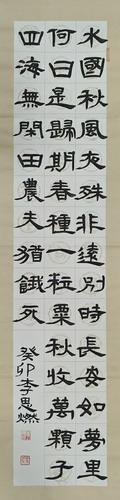 水國秋風夜殊非遠別時長安如夢里
何日是歸期春種一粒粟秋收萬顆子
四海無閑田農夫猶餓死
癸卯李思燃